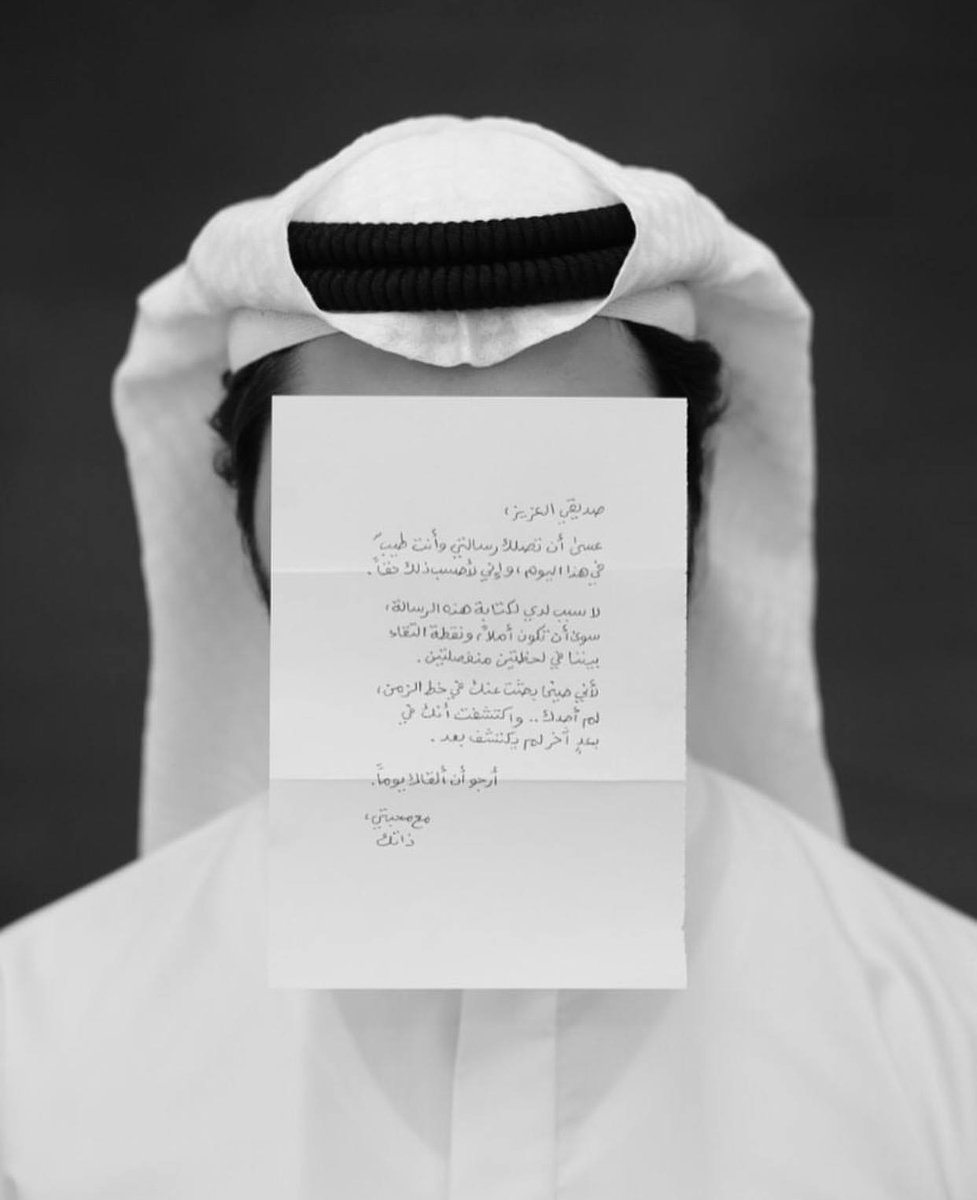 صديقي العزيز،
عسىٰ أن تصلك رسالتي وأنت طيبٌ
في هذا اليوم، وإني لأحسب ذلك حقاً.
لا سبب لدي لكتابة هذه الرسالة،
سوىٰ أن تكون أملاً، ونقطة التقاء
بيننا في لحظتين منفصلتين.
لأني حينما بحثت عنك في خط الزمن،
لم أجدك.. واكتشفت أنك في
بعدٍ آخر لم يكتشف بعد.
أرجو أن ألقاك يوماً.
مع محبتي،
ذاتك